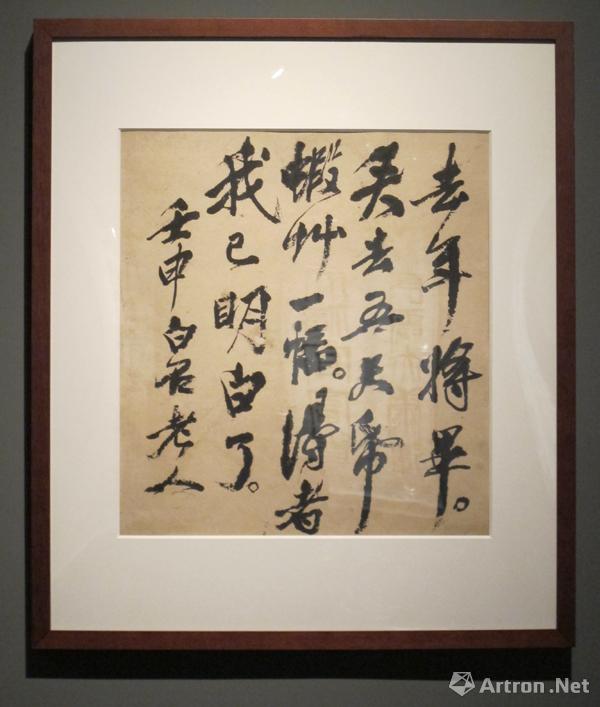 去年將畢。
失去五尺帋
蝦艸一幅。得者
我已明白了。
壬申白石老人
Artron.Net